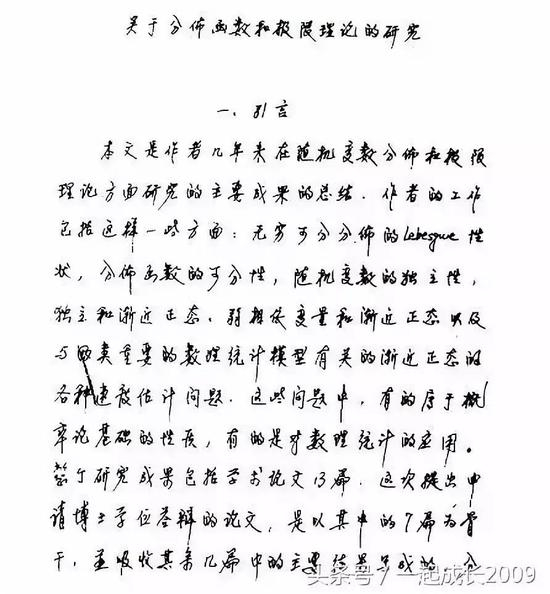 关于分佈函数和极限理论的研究
一、引言
本文是作者几年来在随机变数分佈和极限
理论方面研究的主要成果的总结．作者的工作
包括这样一些方面：无穷可分分佈的Lebesgue性
状，分佈函数的可分性，随机变数的独立性，
独立和渐近正态、弱相依变量和渐近正态以及
与 类重要的数理统计模型有关的渐近正态的
各种速度估计问题．这些问题中，有的属于概
率论基础的性质，有的是对数理统计的应用。
整个研究成果包括学术论文13篇．这次提出申
请博士学位答辩的论文，是以其中的7篇为骨
干，並吸收其余几篇中的主要结果 成的．分
头条号 / 一起成长2009